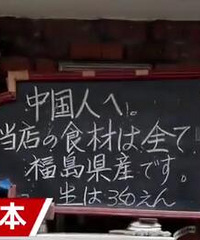 中国人へ。
当店の食材は、全て
福島県産です。
生は350えん
本